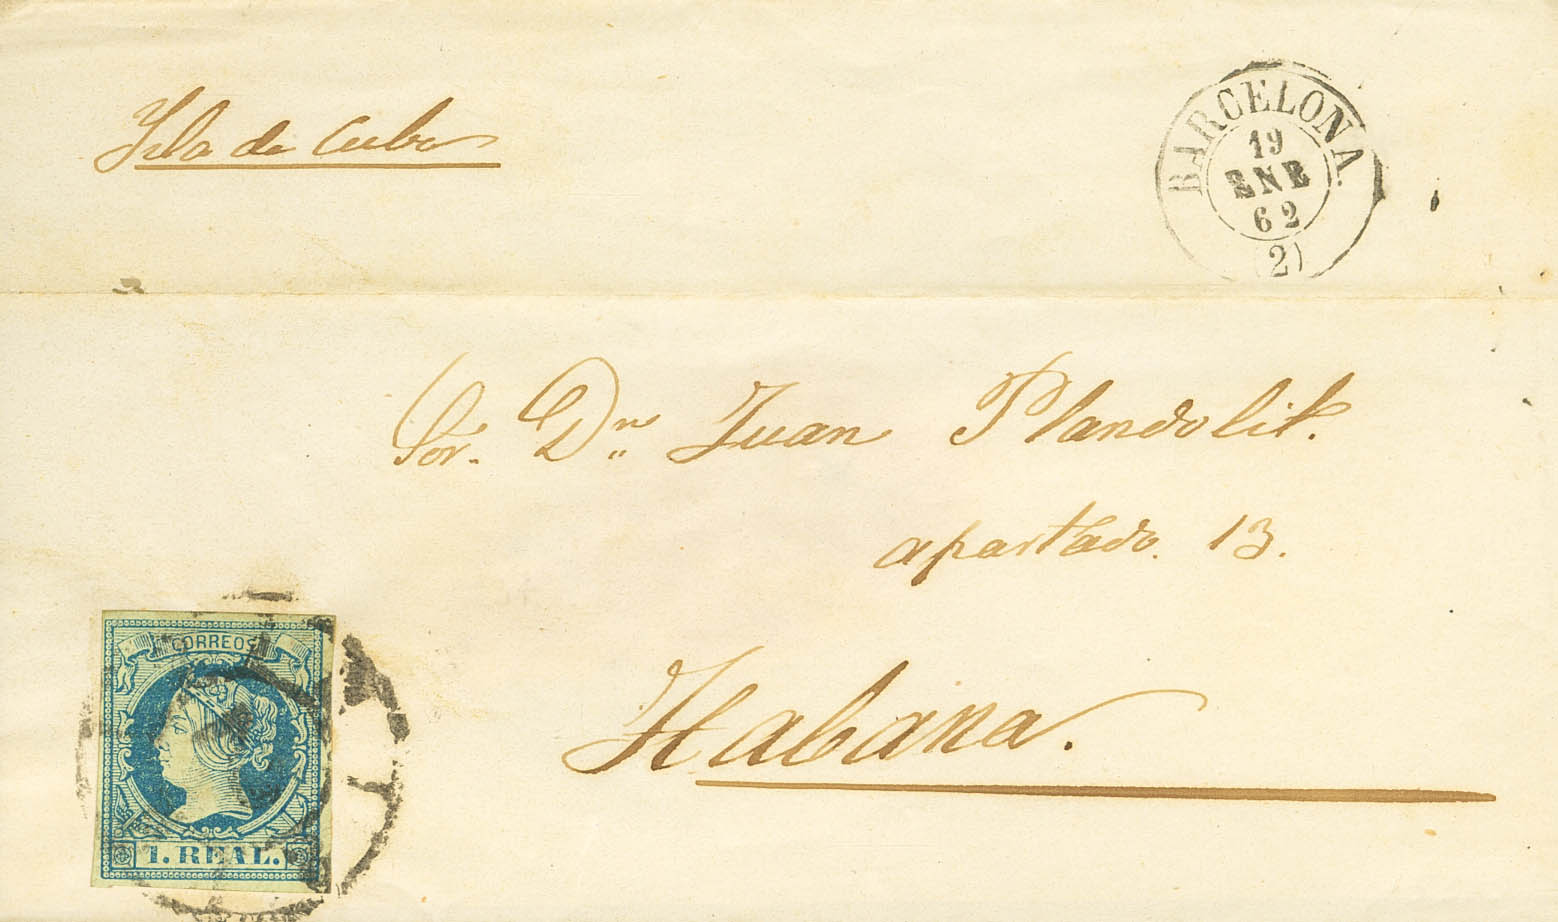 Ysla de Cuba
BARCELONA.
19
ENE
62
(2)
Sor. Dn. Juan Plandolit.
apartado. 13.
Habana.
CORREOS
1. REAL.